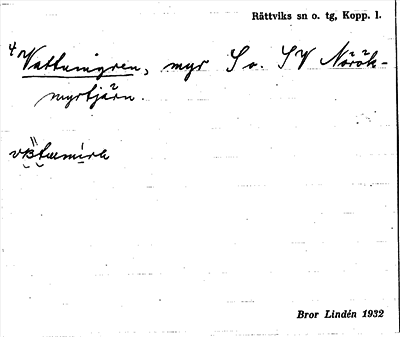 Rättviks sn o. tg, Kopp. l.
4 Vattumyren, myr S o. SV Nörök-
myrtjärn.
Bror Lindén 1932